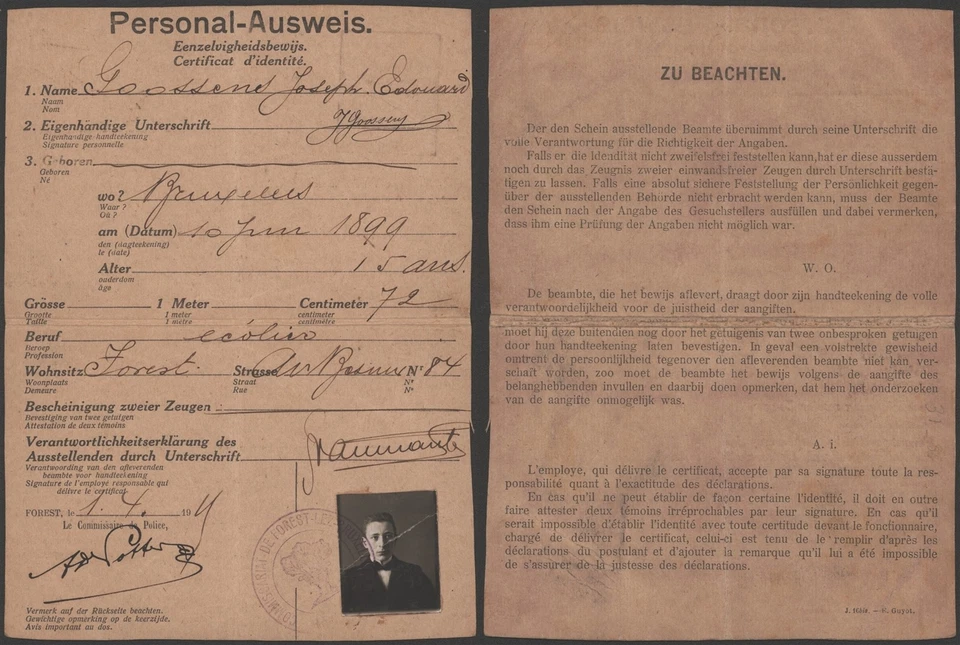 Personal-Ausweis.
Eenzelvigheidsbewijs.
Certificat d'identité.
1. Name Goossens Joseph. Edouard
Naam
Nom
2. Eigenhändige Unterschrift JGoossens
Eigenhandige handteekening
Signature personnelle
3. Geboren
Geboren
Né
wo? Bruxelles
Waar ?
Où ?
am (Datum) 10 Juin 1899
den (dagteekening)
le (date)
Alter 15 ans.
ouderdom
âge
Grösse 1 Meter Centimeter 72
Grootte 1 meter centimeter
Taille 1 mètre centimètre
Beruf écolier
Beroep
Profession
Wohnsitz Forest. Strasse Nr 84
Woonplaats Straat Nr
Demeure Rue No
Bescheinigung zweier Zeugen
Bevestiging van twee getuigen
Attestation de deux témoins
Verantwortlichkeitserklärung des
Ausstellenden durch Unterschrift
Verantwoording van den afleverenden
beambte voor handteekening
Signature de l'employe responsable qui
délivre le certificat
FOREST, le 1. 4. 191
Le Commissaire de Police,
Vermerk auf der Rückseite beachten.
Gewichtige opmerking op de keerzijde.
Avis important au dos.
ZU BEACHTEN.
Der den Schein ausstellende Beamte übernimmt durch seine Unterschrift die
volle Verantwortung für die Richtigkeit der Angaben.
Falls er die Identität nicht zweifelsfrei feststellen kann, hat er diese ausserdem
noch durch das Zeugnis zweier einwandsfreier Zeugen durch Unterschrift bestä-
tigen zu lassen. Falls eine absolut sichere Feststellung der Persönlichkeit gegen-
über der ausstellenden Behörde nicht erbracht werden kann, muss der Beamte
den Schein nach der Angabe des Gesuchstellers ausfüllen und dabei vermerken,
dass ihm eine Prüfung der Angaben nicht möglich war.
W. O.
De beambte, die het bewijs aflevert, draagt door zijn handteekening de volle
verantwoordelijheid voor de juistheid der aangiften.
moet hij deze buitendien nog door het getuigenis van twee onbesproken getuigen
door hun handteekening laten bevestigen. In geval een volstrekte gewisheid
omtrent de persoonlijkheid tegenover den afleverenden beambte niet kan ver-
schaft worden, zoo moet de beambte het bewijs volgens de aangifte des
belanghebbenden invullen en daarbij doen opmerken, dat hem het onderzoeken
van de aangifte onmogelijk was.
A. i.
L'employe, qui délivre le certificat, accepte par sa signature toute la res-
ponsabilité quant à l'exactitude des déclarations.
En cas qu'il ne peut établir de façon certaine l'identité, il doit en outre
faire attester deux témoins irréprochables par leur signature. En cas qu'il
serait impossible d'établir l'identité avec toute certitude devant le fonctionnaire,
chargé de délivrer le certificat, celui-ci est tenu de le remplir d'après les
déclarations du postulant et d'ajouter la remarque qu'il lui a été impossible
de s'assurer de la justesse des déclarations.